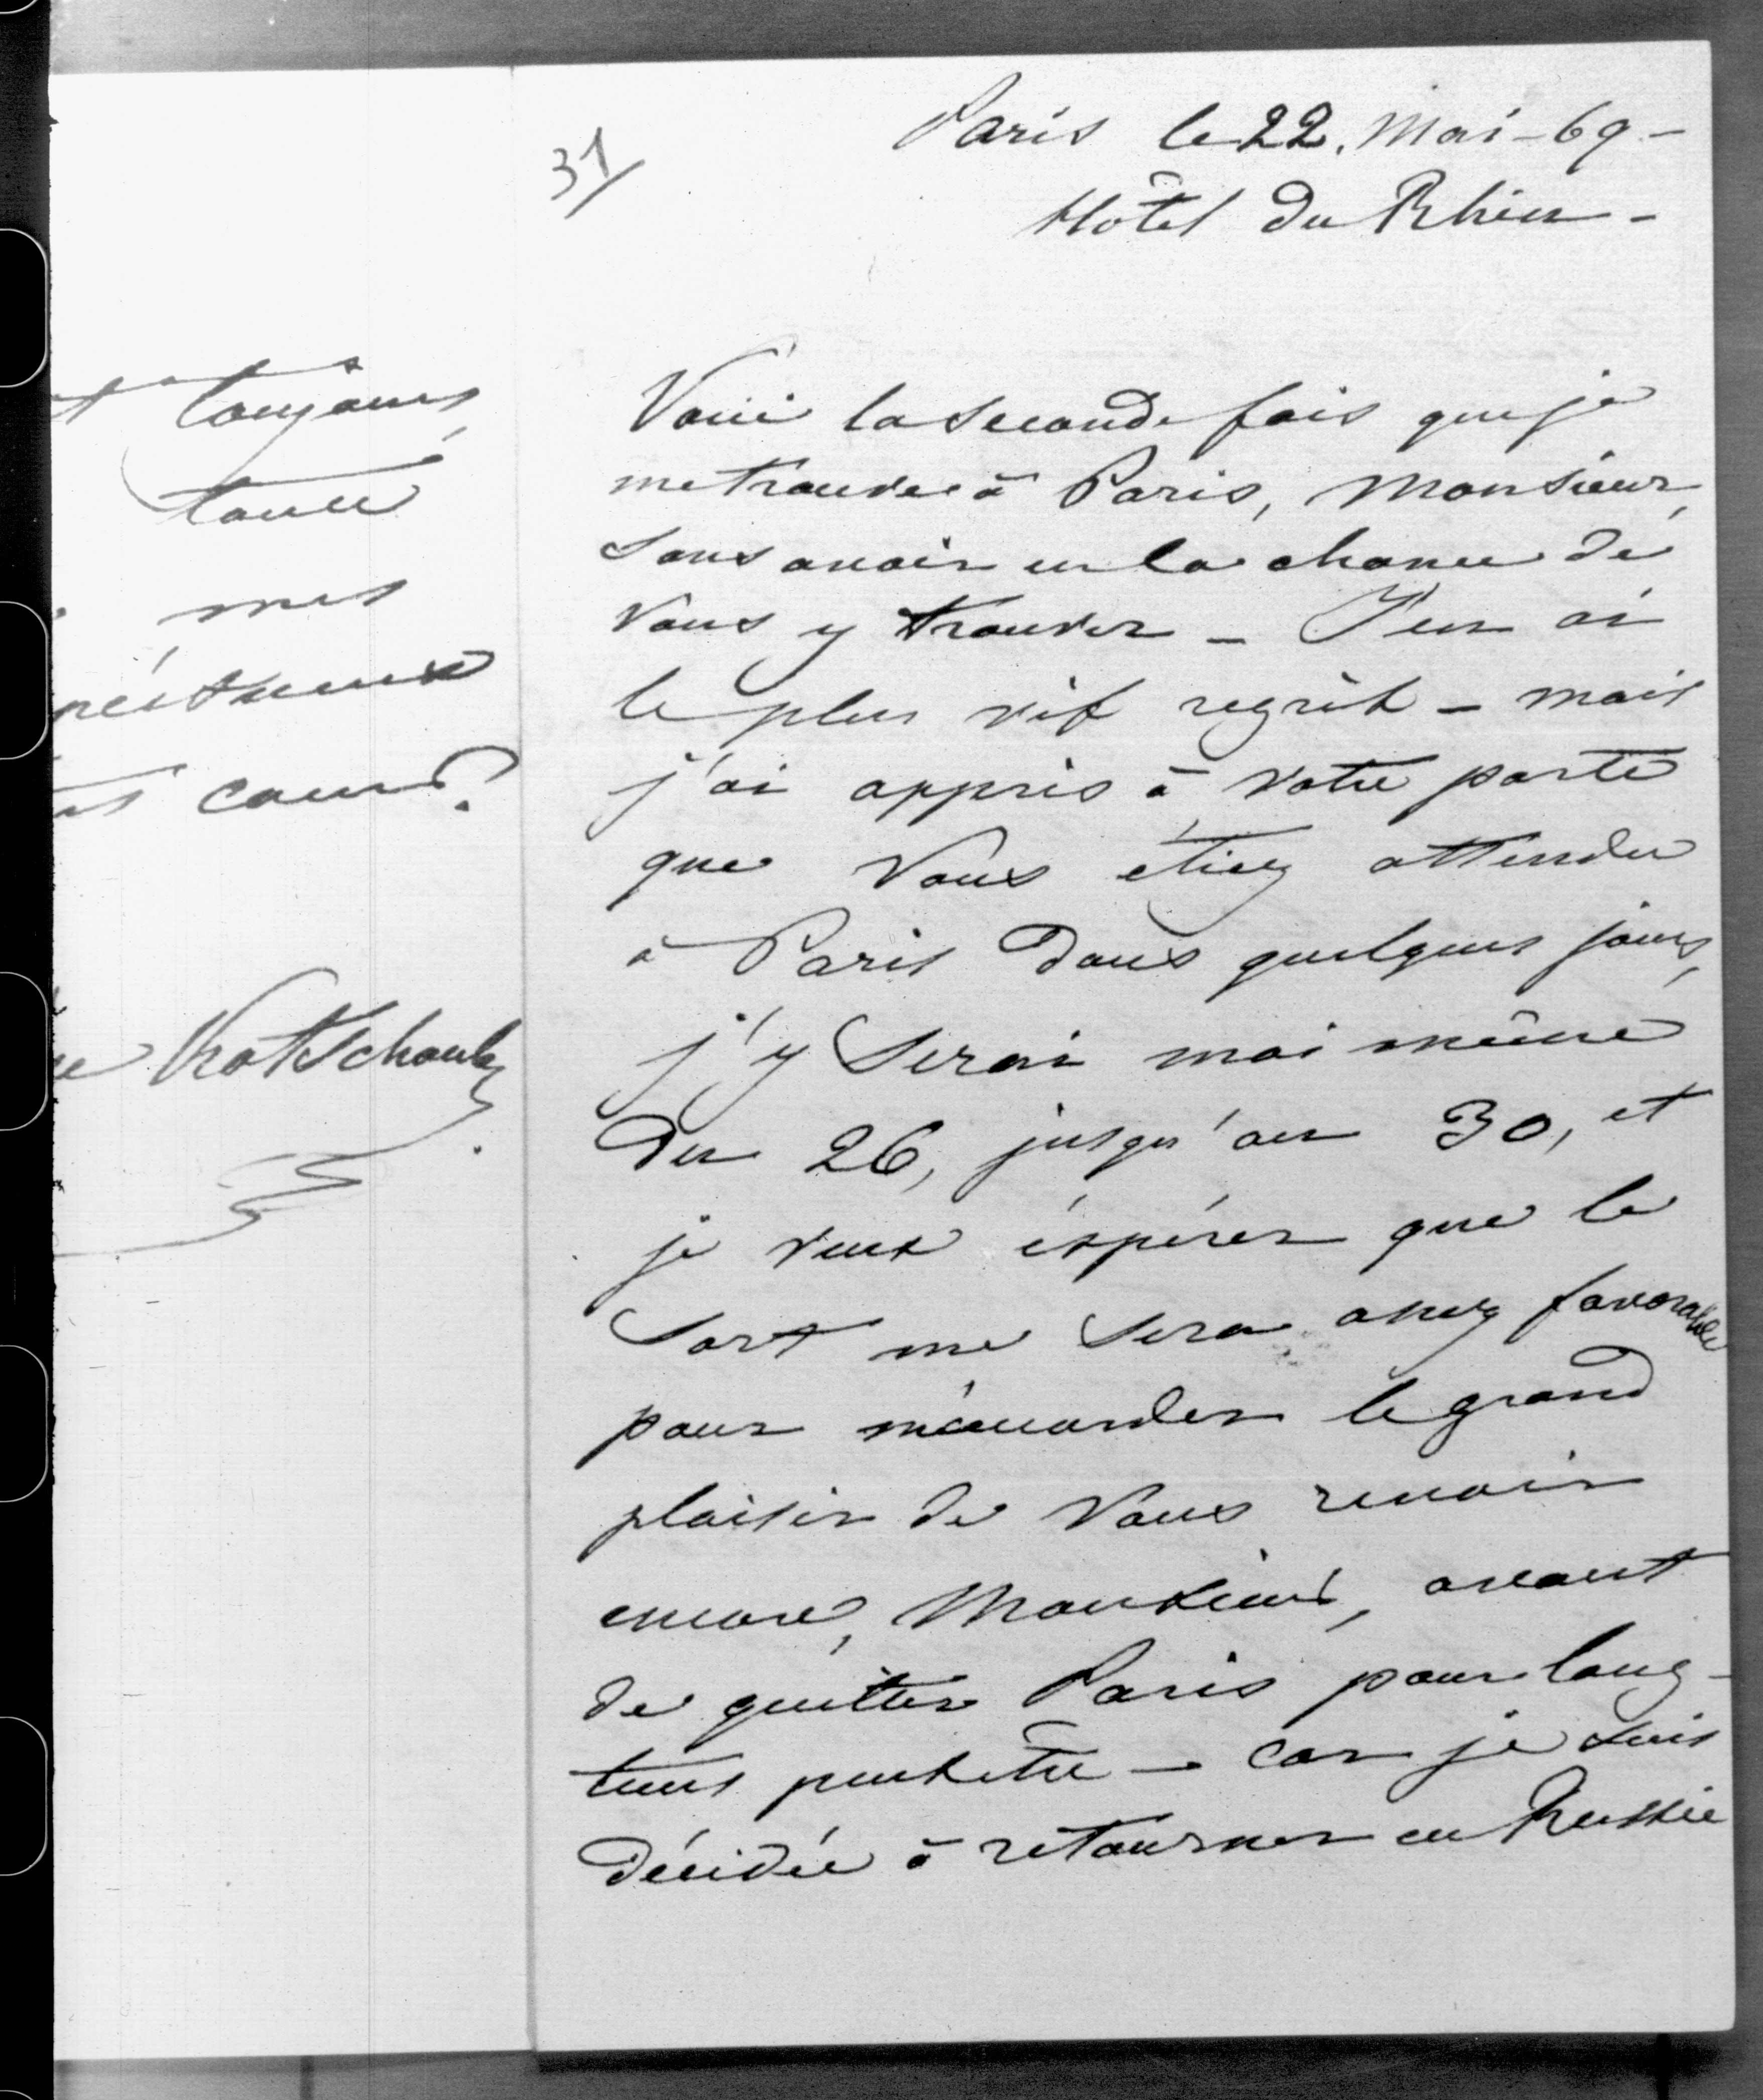 t toujours
toute
mes
pectueux
et coeur?
Kotschoubey
31
Paris le 22. Mai - 69 -
Hôtel du Rhin -
Voici la seconde fois que je
me trouve à Paris, Monsieur,
sans avoir eu la chance de
Vous y trouver - J'en ai
le plus vif regrèt - mais
j'ai appris à votre porte
que Vous étiez attendu
à Paris dans quelques jours,
j'y serai moi même
du 26, jusqu'au 30, et
je veux éspérer que le
sort me sera assez favorable
pour m'accorder le grand
plaisir de Vous revoir
encore, Monsieur, avant
de quitter Paris pour long-
tems peutêtre - car je suis
décidée à retourner en Russie